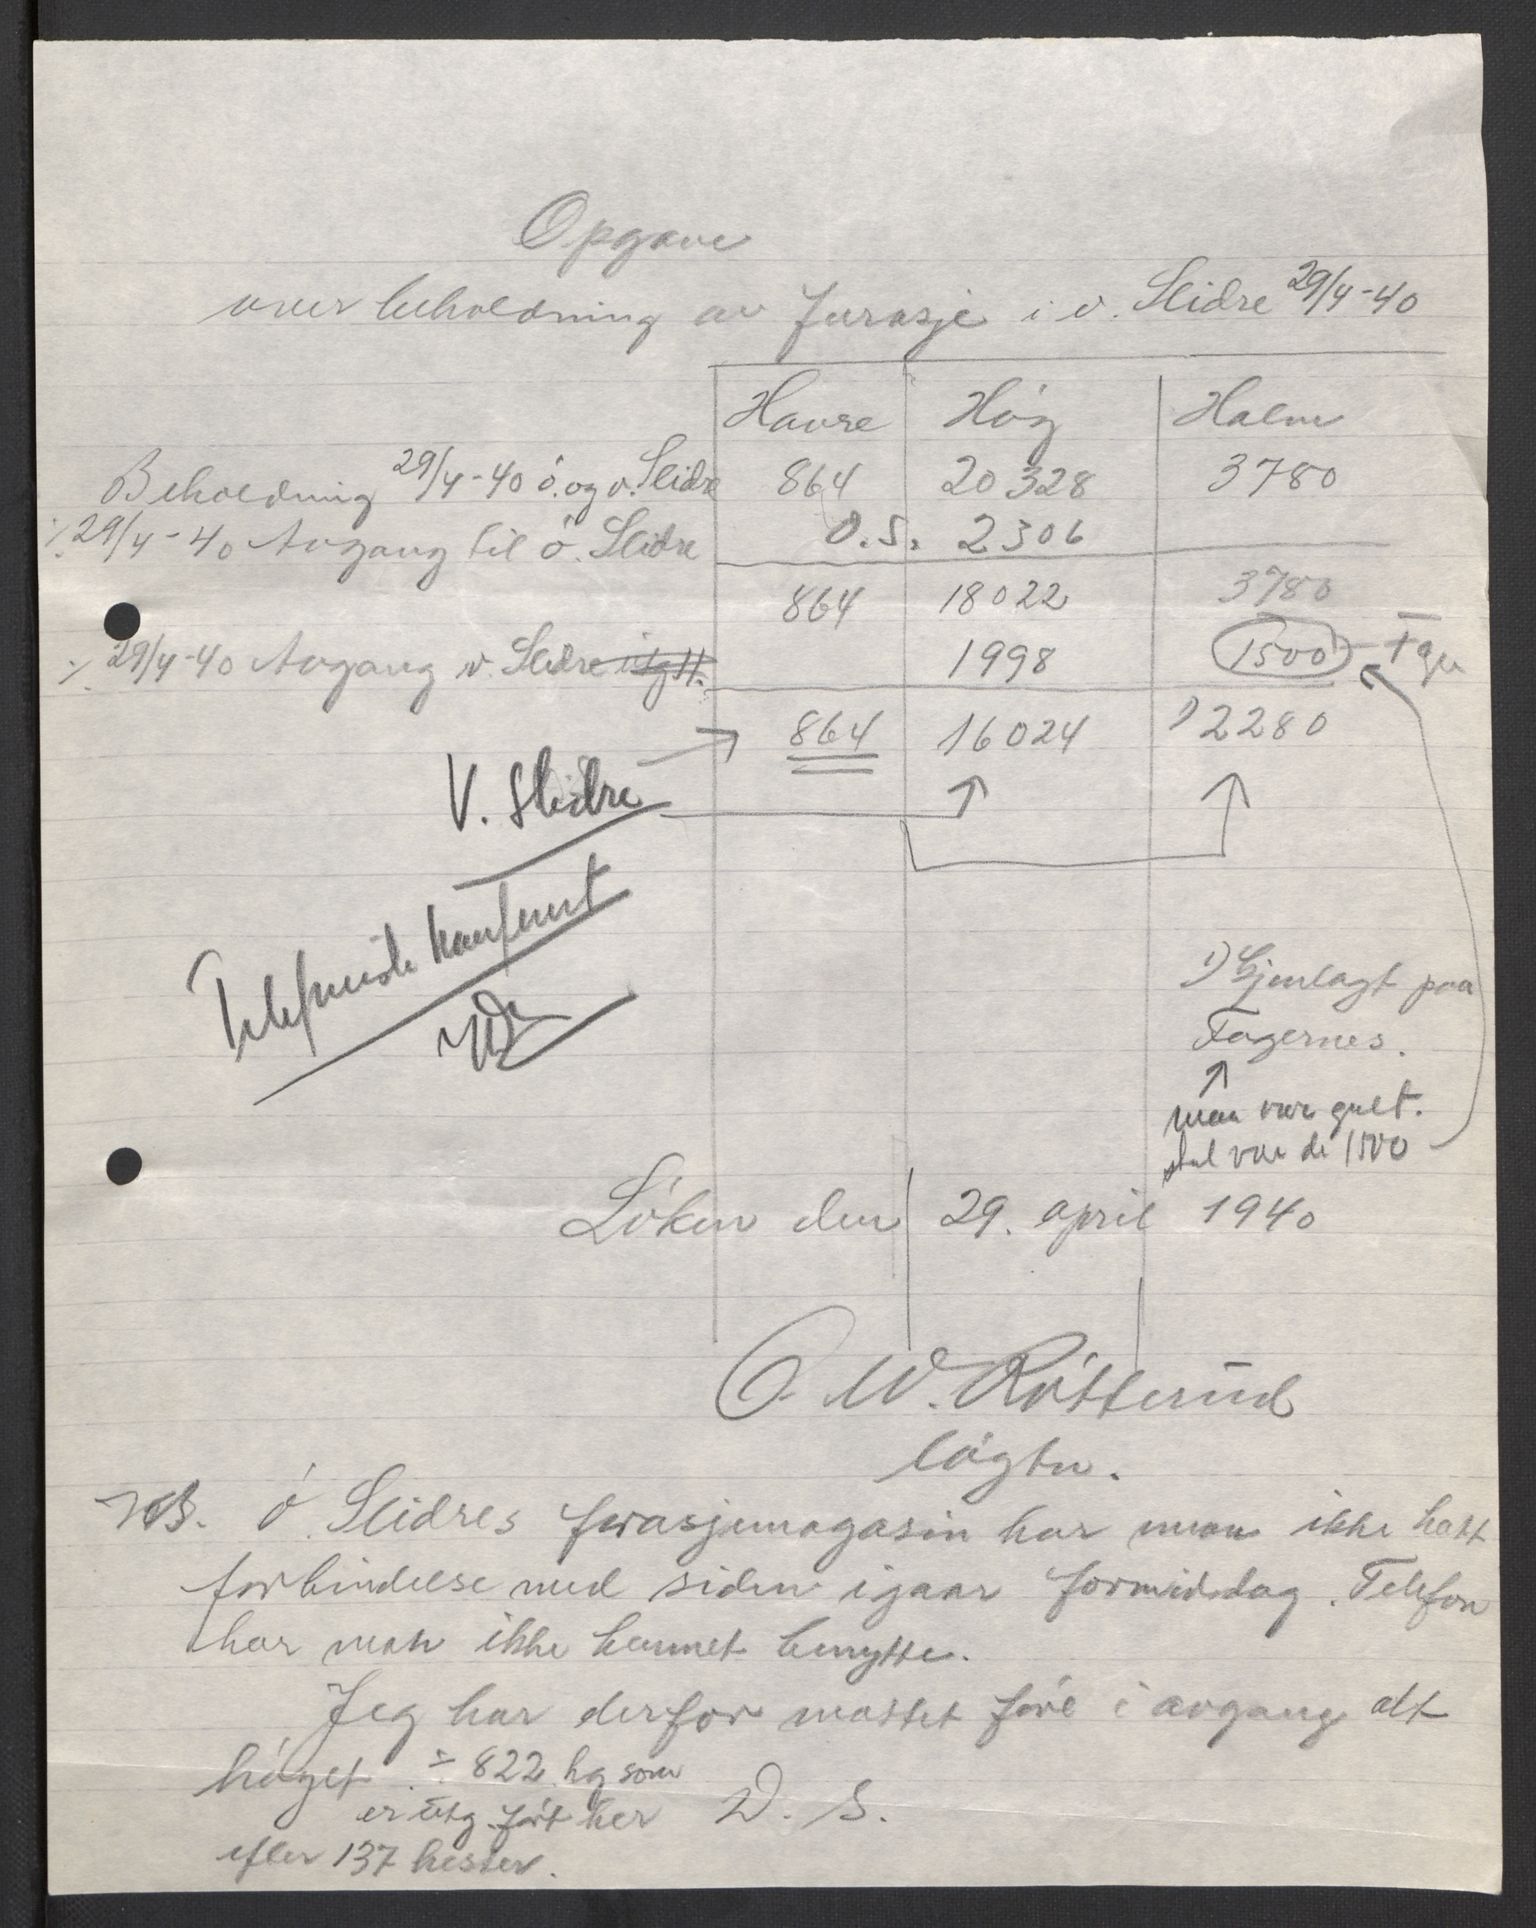 Opgave
over beholdning av furasje i v. Slidre 29/4-40
Havre Höy Halm
Beholdning 29/4-40 ö. og v. Slidre 864 20328 3780
÷ 29/4-40 Avgang til ö. Slidre Ö.S. 2306
864 18022 3780
÷ 29/4-40 Avgang v. Slidre 1998 1500 - Fager
864 16024 1) 2280
V. Slidre
Telefonisk konferert
1) Gjenlagt paa
Fagernes.
man var gult.
skal være de 1500
Löken den 29. april 1940
O. W. Rötterud
lögtn.
NB. Ö. Slidres furasjemagasin har man ikke hatt
forbindelse med siden igaar formiddag. Telefon
har man ikke kunnet benytte.
Jeg har derfor maattet före i avgang alt
höyet ÷ 822 kg som
er utg. fört her D. S.
efter 137 hester.